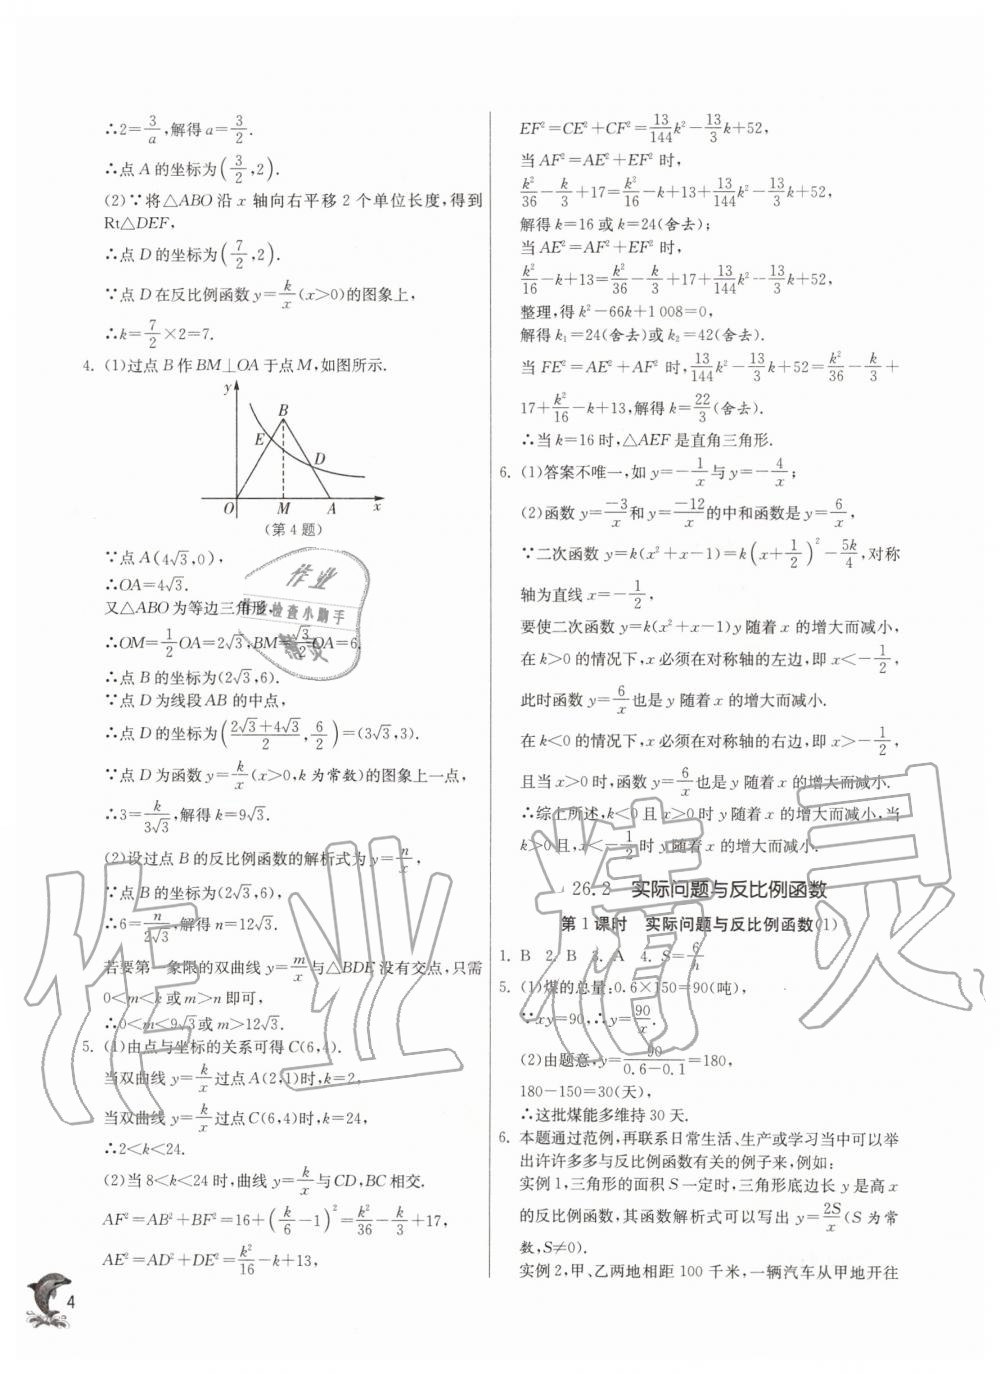 ∴2=3/a,解得a=3/2.
∴点A的坐标为(3/2,2).
(2)∵将△ABO沿x轴向右平移2个单位长度,得到
Rt△DEF,
∴点D的坐标为(7/2,2).
∵点D在反比例函数y=k/x(x>0)的图象上,
∴k=7/2×2=7.
4. (1)过点B作BM⊥OA于点M,如图所示.
y
B
E
D
O M A x
(第4题)
∵点A(4√3,0),
∴OA=4√3.
又△ABO为等边三角形,
∴OM=1/2OA=2√3,BM=√3/2OA=6.
∴点B的坐标为(2√3,6).
∵点D为线段AB的中点,
∴点D的坐标为((2√3+4√3)/2,6/2)=(3√3,3).
∵点D为函数y=k/x(x>0,k为常数)的图象上一点,
∴3=k/3√3,解得k=9√3.
(2)设过点B的反比例函数的解析式为y=n/x,
∵点B的坐标为(2√3,6),
∴6=n/2√3,解得n=12√3.
若要第一象限的双曲线y=m/x与△BDE没有交点,只需
0<m<k或m>n即可,
∴0<m<9√3或m>12√3.
5. (1)由点与坐标的关系可得C(6,4).
当双曲线y=k/x过点A(2,1)时,k=2,
当双曲线y=k/x过点C(6,4)时,k=24,
∴2<k<24.
(2)当8<k<24时,曲线y=k/x与CD,BC相交.
AF²=AB²+BF²=16+(k/6-1)²=k²/36-k/3+17,
AE²=AD²+DE²=k²/16-k+13,
4
EF²=CE²+CF²=13/144k²-13/3k+52,
当AF²=AE²+EF²时,
k²/36-k/3+17=k²/16-k+13+13/144k²-13/3k+52,
解得k=16或k=24(舍去);
当AE²=AF²+EF²时,
k²/16-k+13=k²/36-k/3+17+13/144k²-13/3k+52,
整理,得k²-66k+1 008=0,
解得k₁=24(舍去)或k₂=42(舍去).
当FE²=AE²+AF²时,13/144k²-13/3k+52=k²/36-k/3+
17+k²/16-k+13,解得k=22/3(舍去).
∴当k=16时,△AEF是直角三角形.
6. (1)答案不唯一,如y=-1/x与y=-4/x;
(2)函数y=-3/x和y=-12/x的中和函数是y=6/x,
∵二次函数y=k(x²+x-1)=k(x+1/2)²-5k/4,对称
轴为直线x=-1/2,
要使二次函数y=k(x²+x-1)y随着x的增大而减小,
在k>0的情况下,x必须在对称轴的左边,即x<-1/2,
此时函数y=6/x也是y随着x的增大而减小.
在k<0的情况下,x必须在对称轴的右边,即x>-1/2,
且当x>0时,函数y=6/x也是y随着x的增大而减小.
∴综上所述,k<0且x>0时y随着x的增大而减小,当
k>0且,x<-1/2时y随着x的增大而减小.
26.2 实际问题与反比例函数
第1课时 实际问题与反比例函数(1)
1. B 2. B 3. A 4. S=6/h
5. (1)煤的总量:0.6×150=90(吨),
∵xy=90,∴y=90/x.
(2)由题意,y=90/(0.6-0.1)=180,
180-150=30(天),
∴这批煤能多维持30天.
6. 本题通过范例,再联系日常生活、生产或学习当中可以举
出许许多多与反比例函数有关的例子来,例如:
实例1,三角形的面积S一定时,三角形底边长y是高x
的反比例函数,其函数解析式可以写出y=2S/x(S为常
数,S≠0).
实例2,甲、乙两地相距100千米,一辆汽车从甲地开往
作业
作业检查小助手
精灵
作业精灵